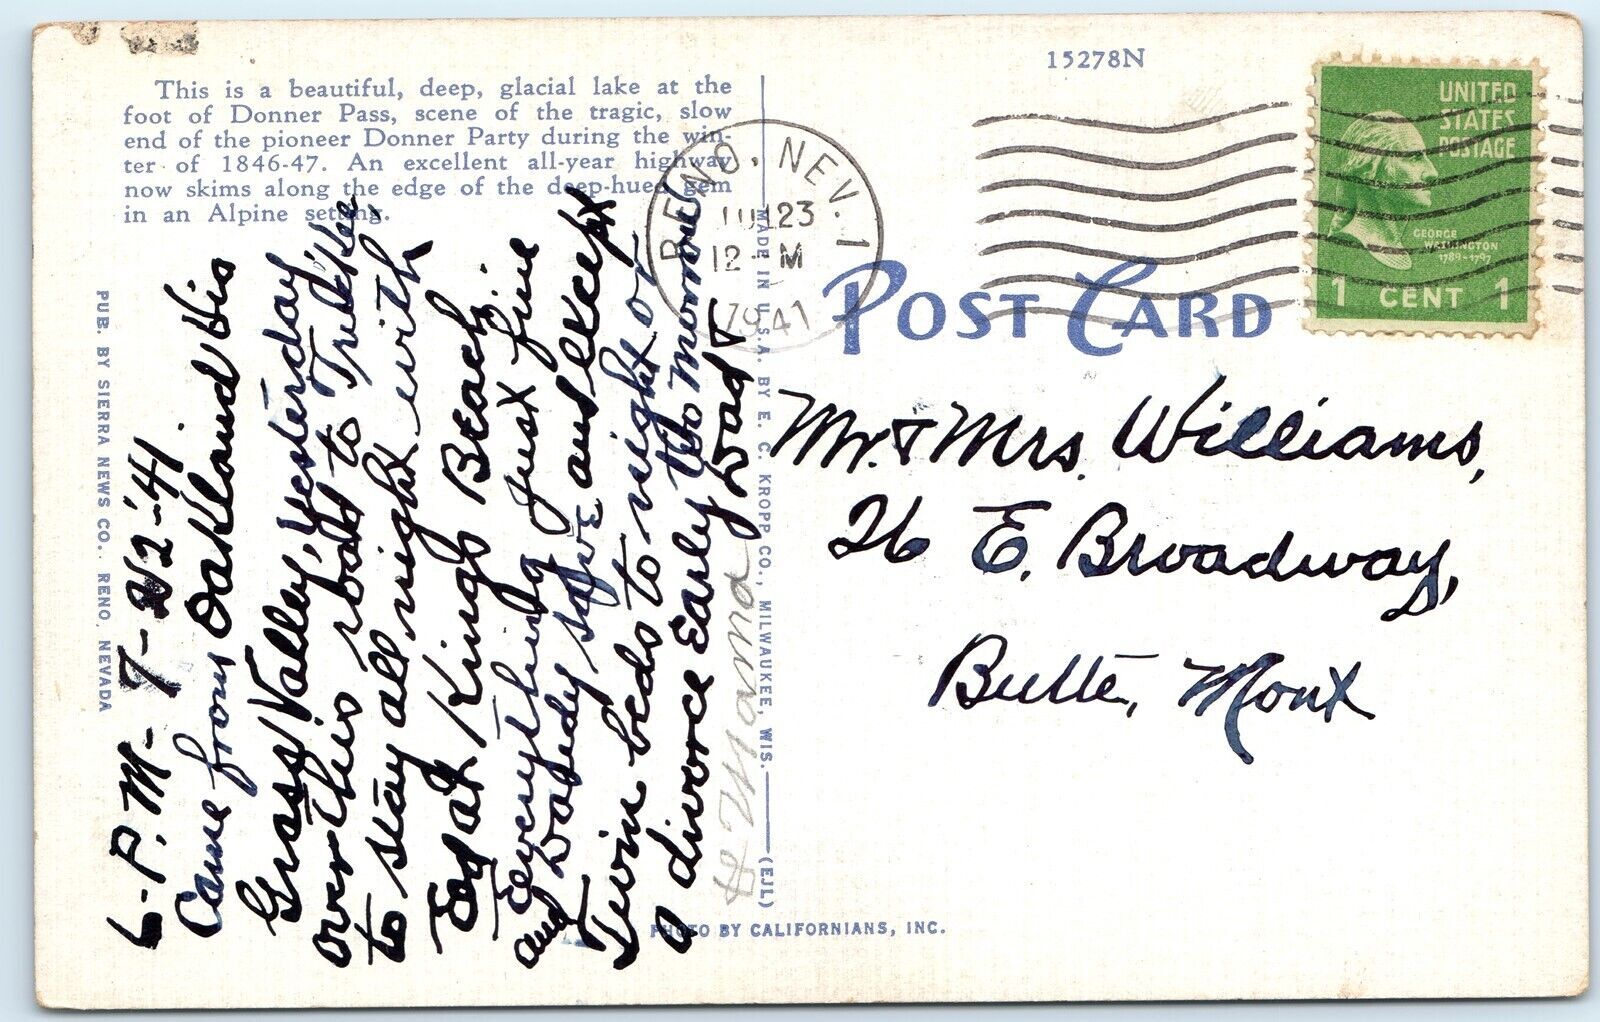 15278N
This is a beautiful, deep, glacial lake at the
foot of Donner Pass, scene of the tragic, slow
end of the pioneer Donner Party during the win-
ter of 1846-47. An excellent all-year highway
now skims along the edge of the deep-hued gem
in an Alpine setting.
PUB. BY SIERRA NEWS CO. RENO, NEVADA
6-P.M- 7-22-'41.
Came from Oakland via
Grass Valley, yesterday
over this road to Truckee
to stay all night with
Ed at Kings Beach.
Everything just fine
and Daddy says Except
Twin beds to night or
a divorce Early to morrow
Dad &
& Mama
MADE IN U.S.A. BY E. C. KROPP CO., MILWAUKEE, WIS. (EJL)
PHOTO BY CALIFORNIANS, INC.
RENO, NEV. 1
JUL 23
12 M
1941
POST CARD
UNITED
STATES
POSTAGE
GEORGE
WASHINGTON
1789-1797
1 CENT 1
Mr. & Mrs. Williams,
26 E. Broadway,
Butte, Mont